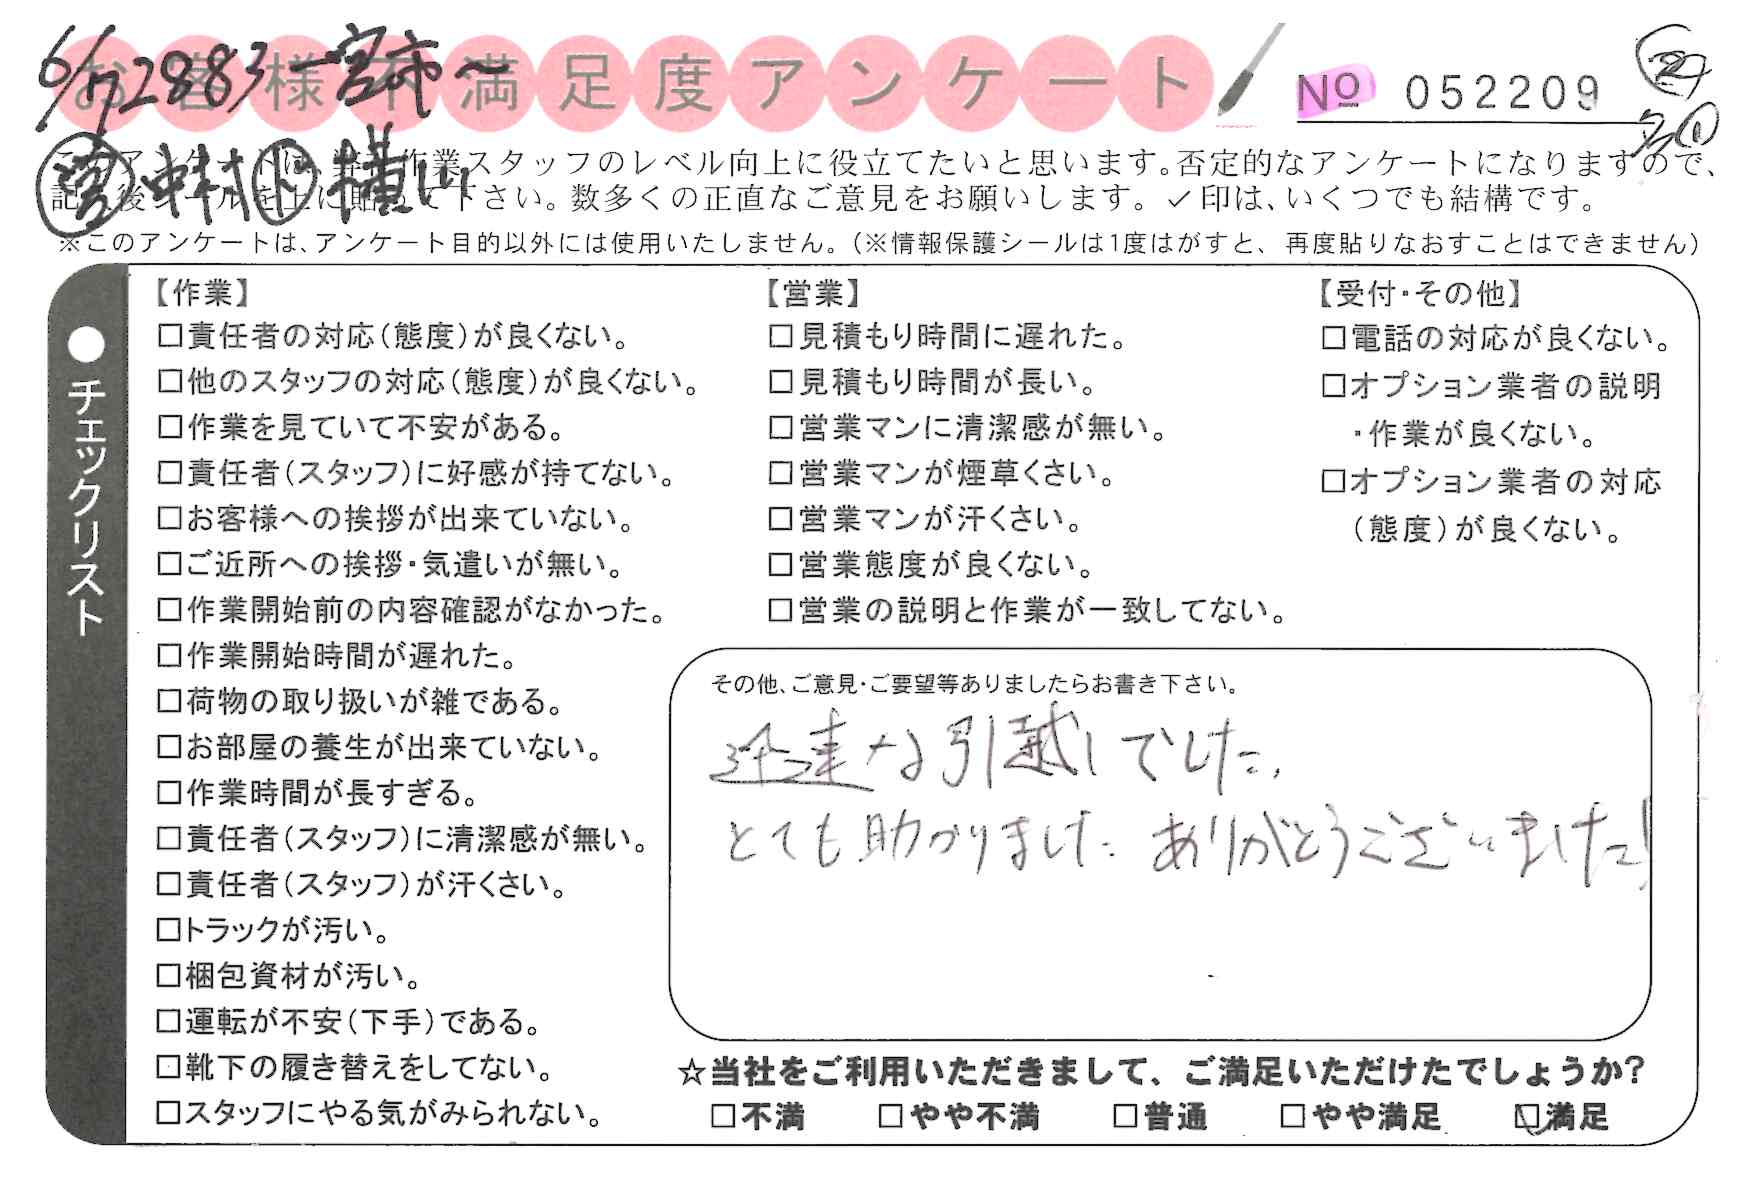 6/17 2883 一宮市〜
お客様不満足度アンケート
№ 052209
㊂中村 ㋣横山
このアンケートは、弊社作業スタッフのレベル向上に役立てたいと思います。否定的なアンケートになりますので、
記入後シールを上に貼って下さい。数多くの正直なご意見をお願いします。✓印は、いくつでも結構です。
※このアンケートは、アンケート目的以外には使用いたしません。(※情報保護シールは1度はがすと、再度貼りなおすことはできません)
●チェックリスト
【作業】
□責任者の対応(態度)が良くない。
□他のスタッフの対応(態度)が良くない。
□作業を見ていて不安がある。
□責任者(スタッフ)に好感が持てない。
□お客様への挨拶が出来ていない。
□ご近所への挨拶・気遣いが無い。
□作業開始前の内容確認がなかった。
□作業開始時間が遅れた。
□荷物の取り扱いが雑である。
□お部屋の養生が出来ていない。
□作業時間が長すぎる。
□責任者(スタッフ)に清潔感が無い。
□責任者(スタッフ)が汗くさい。
□トラックが汚い。
□梱包資材が汚い。
□運転が不安(下手)である。
□靴下の履き替えをしてない。
□スタッフにやる気がみられない。
【営業】
□見積もり時間に遅れた。
□見積もり時間が長い。
□営業マンに清潔感が無い。
□営業マンが煙草くさい。
□営業マンが汗くさい。
□営業態度が良くない。
□営業の説明と作業が一致してない。
【受付・その他】
□電話の対応が良くない。
□オプション業者の説明
・作業が良くない。
□オプション業者の対応
(態度)が良くない。
その他、ご意見・ご要望等ありましたらお書き下さい。
迅速な引越しでした。
とても助かりました。ありがとうございました!
☆当社をご利用いただきまして、ご満足いただけたでしょうか?
□不満 □やや不満 □普通 □やや満足 ☑満足